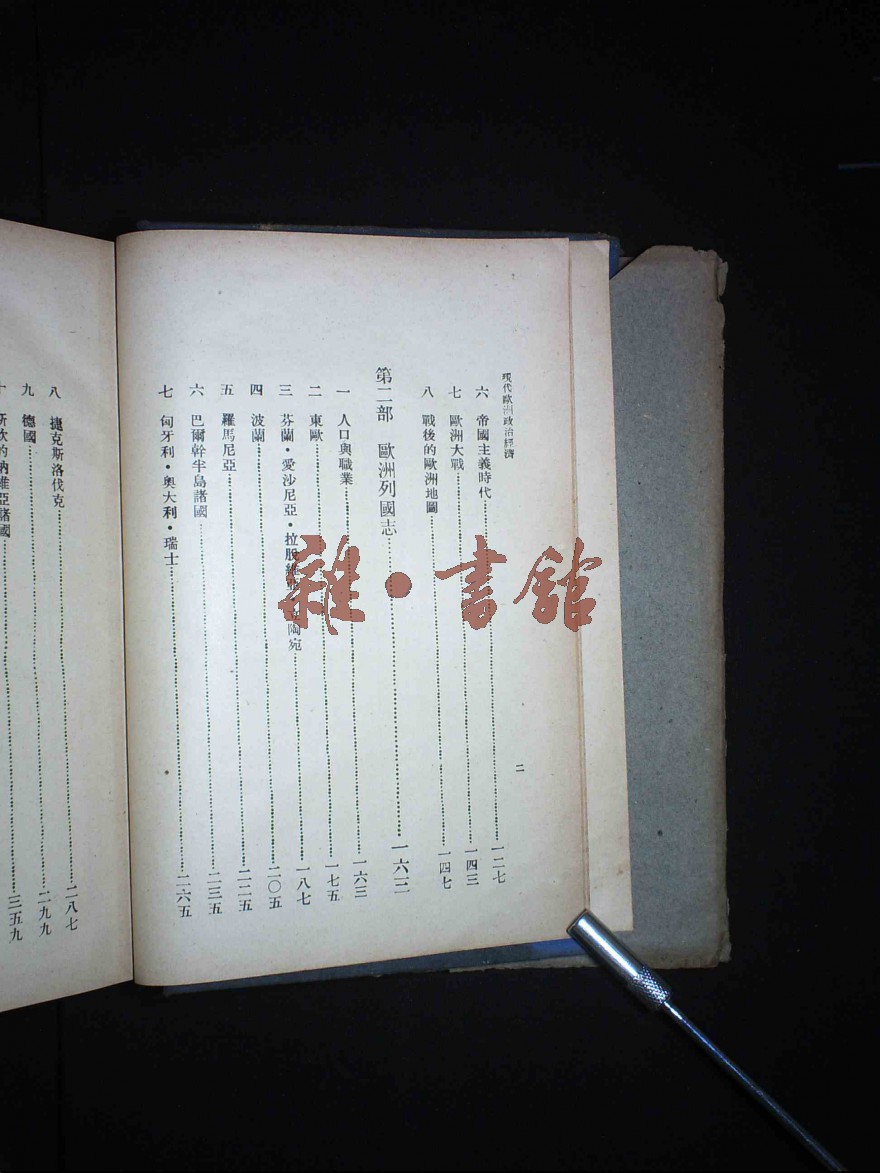 現代歐洲政治經濟
二
六 帝國主義時代……一二七
七 歐洲大戰……一四三
八 戰後的歐洲地圖……一四七
第二部 歐洲列國志……一六三
一 人口與職業……一六三
二 東歐……一七五
三 芬蘭・愛沙尼亞・拉脫 陶宛……一八七
四 波蘭……二〇五
五 羅馬尼亞……二二五
六 巴爾幹半島諸國……二三五
七 匈牙利・奧大利・瑞士……二六五
八 捷克斯洛伐克……二八七
九 德國……二九九
十 斯欽的納維亞諸國……三五九
雜・書館